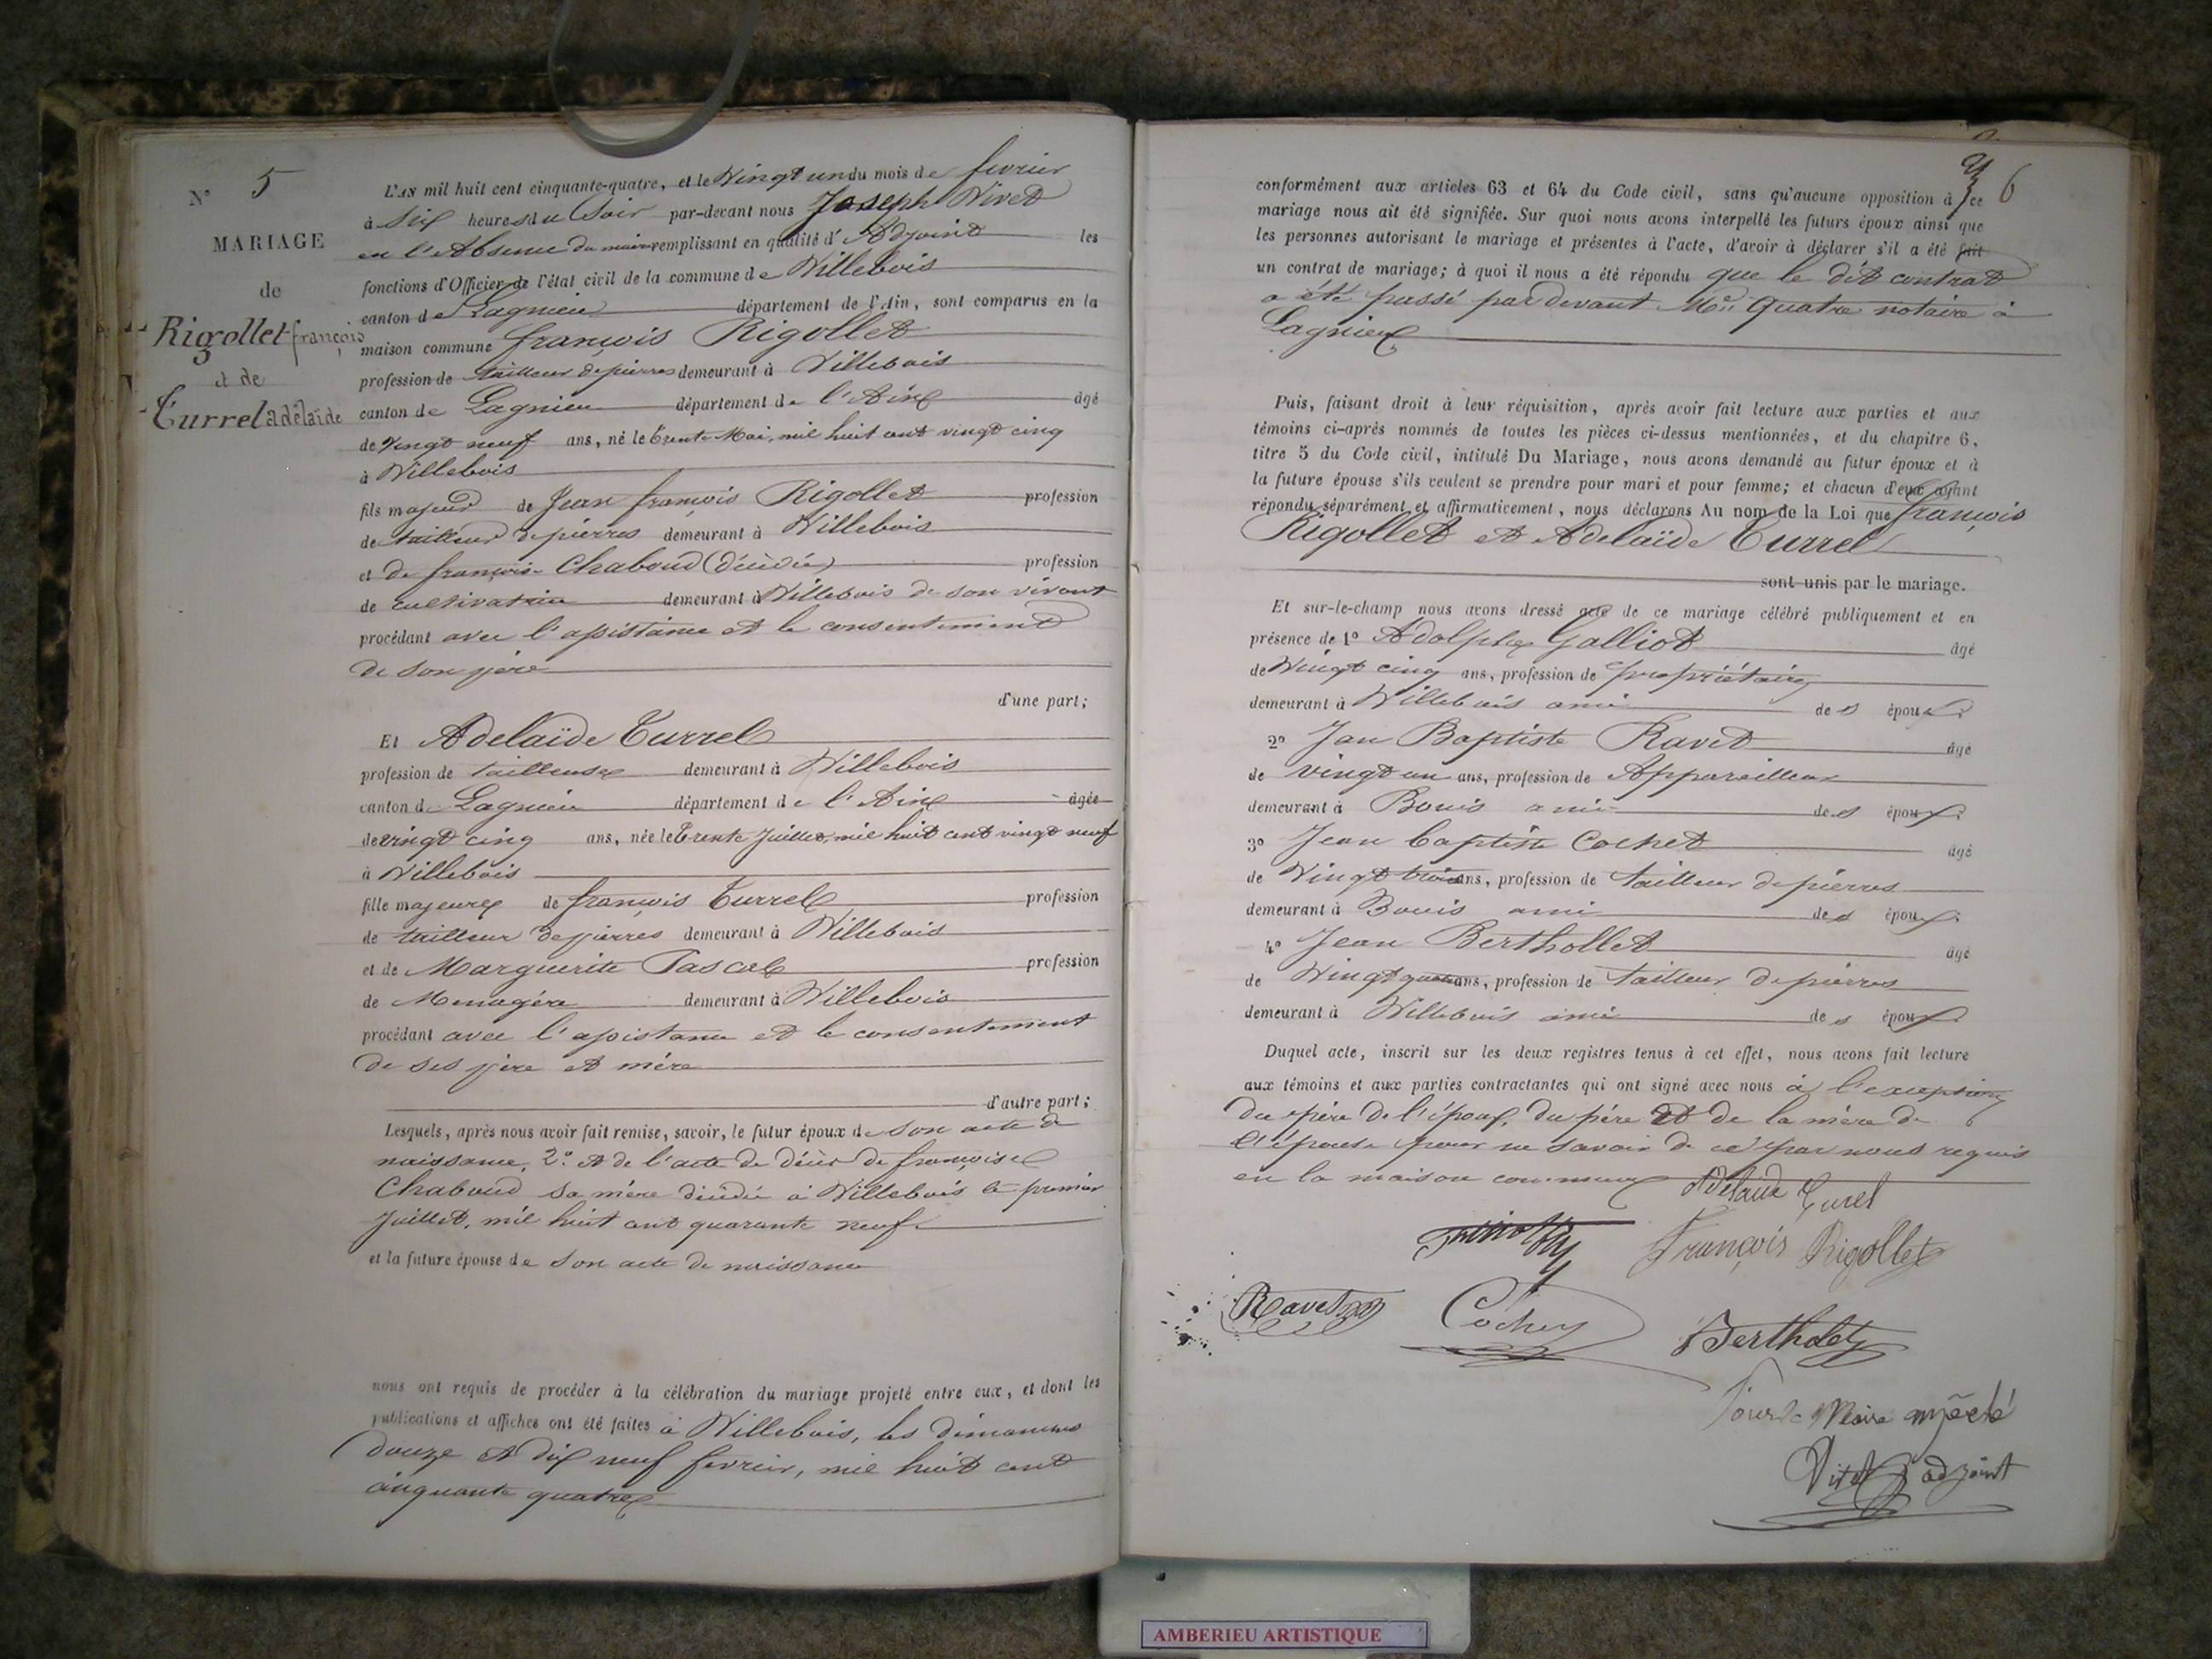 N° 5
MARIAGE
de
Rigollet françois
et de
Turrel adélaïde
L'AN mil huit cent cinquante-quatre, et le Vingt un du mois de fevrier
à Six heures du Soir par-devant nous Joseph Vivet
en l'Absence du maire remplissant en qualité d'Adjoint les
fonctions d'Officier de l'état civil de la commune de Villebois
canton de Lagnieu département de l'Ain, sont comparus en la
maison commune françois Rigollet
profession de tailleur de pierres demeurant à Villebois
canton de Lagnieu département de l'Ain âgé
de Vingt neuf ans, né le trente Mai, mil huit cent vingt cinq
à Villebois
fils majeur de Jean françois Rigollet profession
de tailleur de pierres demeurant à Villebois
et de françoise Chaboud (décédée) profession
de cultivatrice demeurant à Villebois de son vivant
procédant avec l'assistance et le consentement
de son père
d'une part;
Et Adelaïde Turrel
profession de tailleuse demeurant à Villebois
canton de Lagnieu département de l'Ain âgée
de vingt cinq ans, née le trente Juillet, mil huit cent vingt neuf
à Villebois
fille majeure de françois Turrel profession
de tailleur de pierres demeurant à Villebois
et de Marguerite Pascal profession
de Menagère demeurant à Villebois
procédant avec l'assistance et le consentement
de ses père et mère
d'autre part;
Lesquels, après nous avoir fait remise, savoir, le futur époux de son acte de
naissance, 2° et de l'acte de décès de françoise
Chaboud sa mère décédée à Villebois le premier
Juillet, mil huit cent quarante neuf
et la future épouse de son acte de naissance
nous ont requis de procéder à la célébration du mariage projeté entre eux, et dont les
publications et affiches ont été faites à Villebois, les dimanches
douze et dix neuf fevrier, mil huit cent
cinquante quatre
6
conformément aux articles 63 et 64 du Code civil, sans qu'aucune opposition à ce
mariage nous ait été signifiée. Sur quoi nous avons interpellé les futurs époux ainsi que
les personnes autorisant le mariage et présentes à l'acte, d'avoir à déclarer s'il a été fait
un contrat de mariage; à quoi il nous a été répondu que le dit contrat
a été passé par devant Me Quatre notaire à
Lagnieu
Puis, faisant droit à leur réquisition, après avoir fait lecture aux parties et aux
témoins ci-après nommés de toutes les pièces ci-dessus mentionnées, et du chapitre 6,
titre 5 du Code civil, intitulé Du Mariage, nous avons demandé au futur époux et à
la future épouse s'ils veulent se prendre pour mari et pour femme; et chacun d'eux ayant
répondu séparément et affirmativement, nous déclarons Au nom de la Loi que françois
Rigollet et Adelaïde Turrel
sont unis par le mariage.
Et sur-le-champ nous avons dressé acte de ce mariage célébré publiquement et en
présence de 1° Adolphe Galliot âgé
de Vingt cinq ans, profession de propriétaire
demeurant à Villebois ami des époux
2° Jean Baptiste Ravet âgé
de vingt un ans, profession de Appareilleur
demeurant à Bouis ami des époux
3° Jean baptiste Cochet âgé
de Vingt trois ans, profession de tailleur de pierres
demeurant à Bouis ami des époux
4° Jean Berthollet âgé
de Vingt quatre ans, profession de tailleur de pierres
demeurant à Villebois ami des époux
Duquel acte, inscrit sur les deux registres tenus à cet effet, nous avons fait lecture
aux témoins et aux parties contractantes qui ont signé avec nous à l'exception
du père de l'époux, du père et de la mère de
l'épouse pour ne savoir de ce par nous requis
en la maison commune
Adelaïde Turel
François Rigollet
Ravet
Cochet
Bertholet
Pour le Maire
adjoint
AMBERIEU ARTISTIQUE